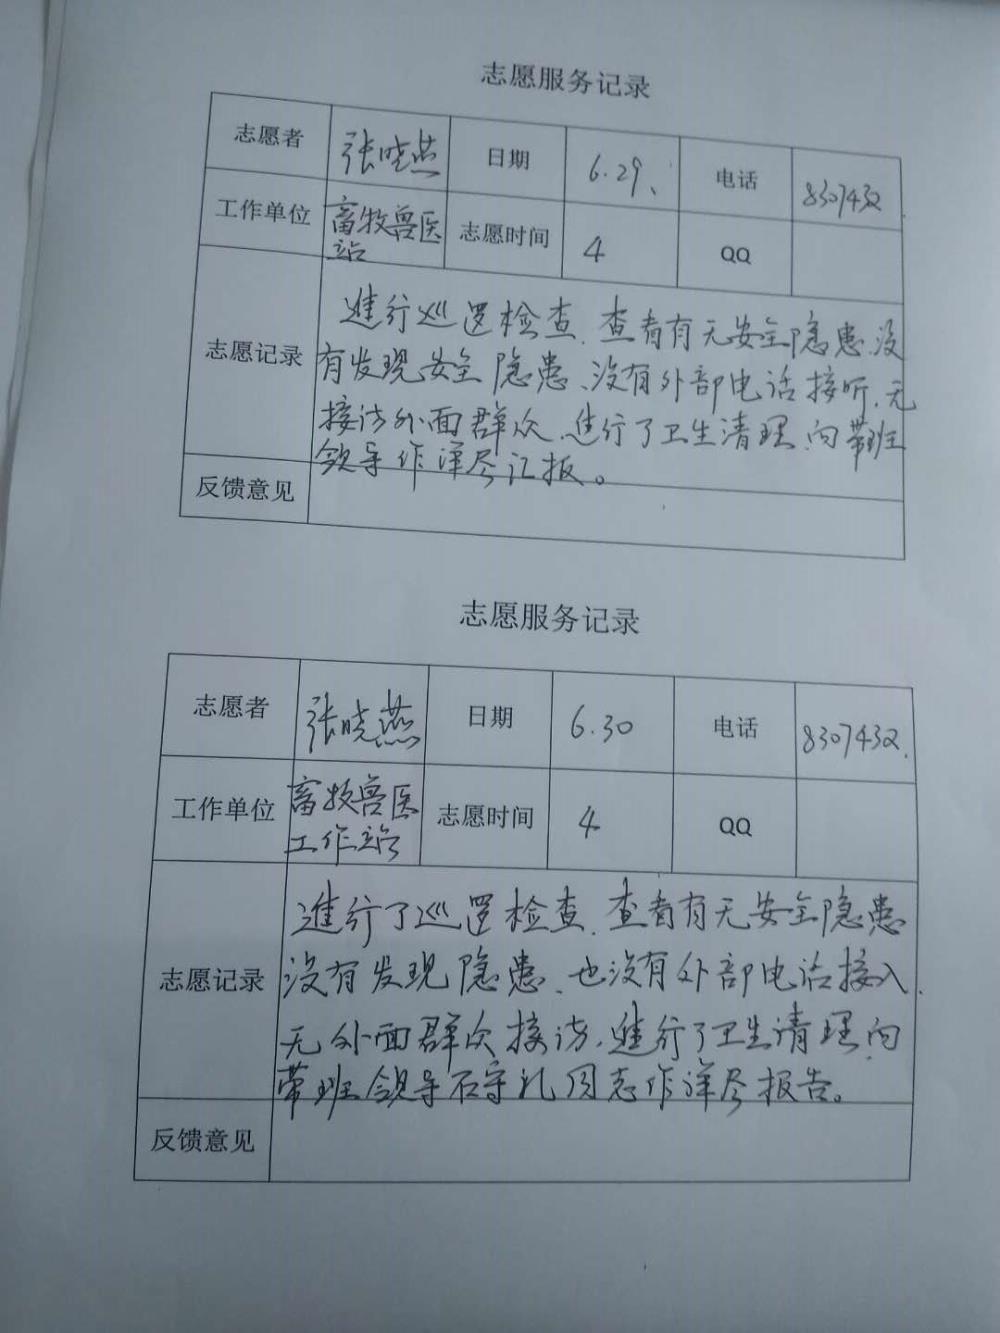 志愿服务记录
志愿者 张晓燕 日期 6.29、 电话 8307432
工作单位 畜牧兽医站 志愿时间 4 QQ
志愿记录
进行巡逻检查、查看有无安全隐患、没
有发现安全隐患、没有外部电话接听、无
接访外面群众、进行了卫生清理、向带班
领导作详尽汇报。
反馈意见
志愿服务记录
志愿者 张晓燕 日期 6.30 电话 8307432.
工作单位 畜牧兽医工作站 志愿时间 4 QQ
志愿记录
进行了巡逻检查、查看有无安全隐患
没有发现隐患、也没有外部电话接入、
无外面群众接访、进行了卫生清理、向
带班领导石守礼同志作详尽报告。
反馈意见